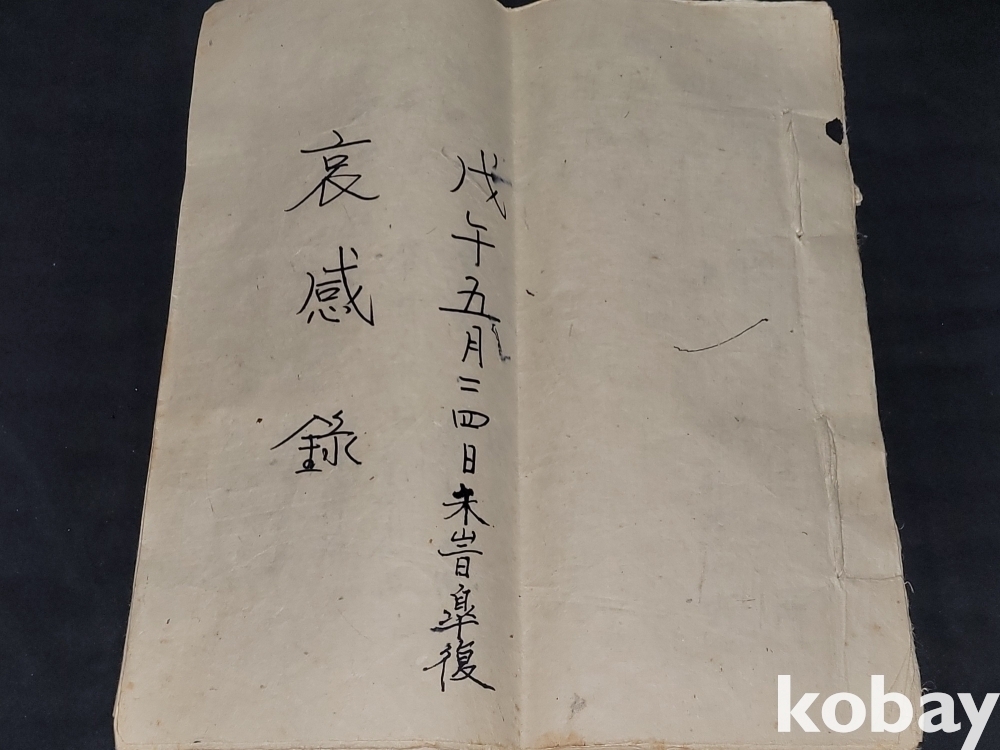 戊午五月二四日未旹皐復
哀感錄
kobay